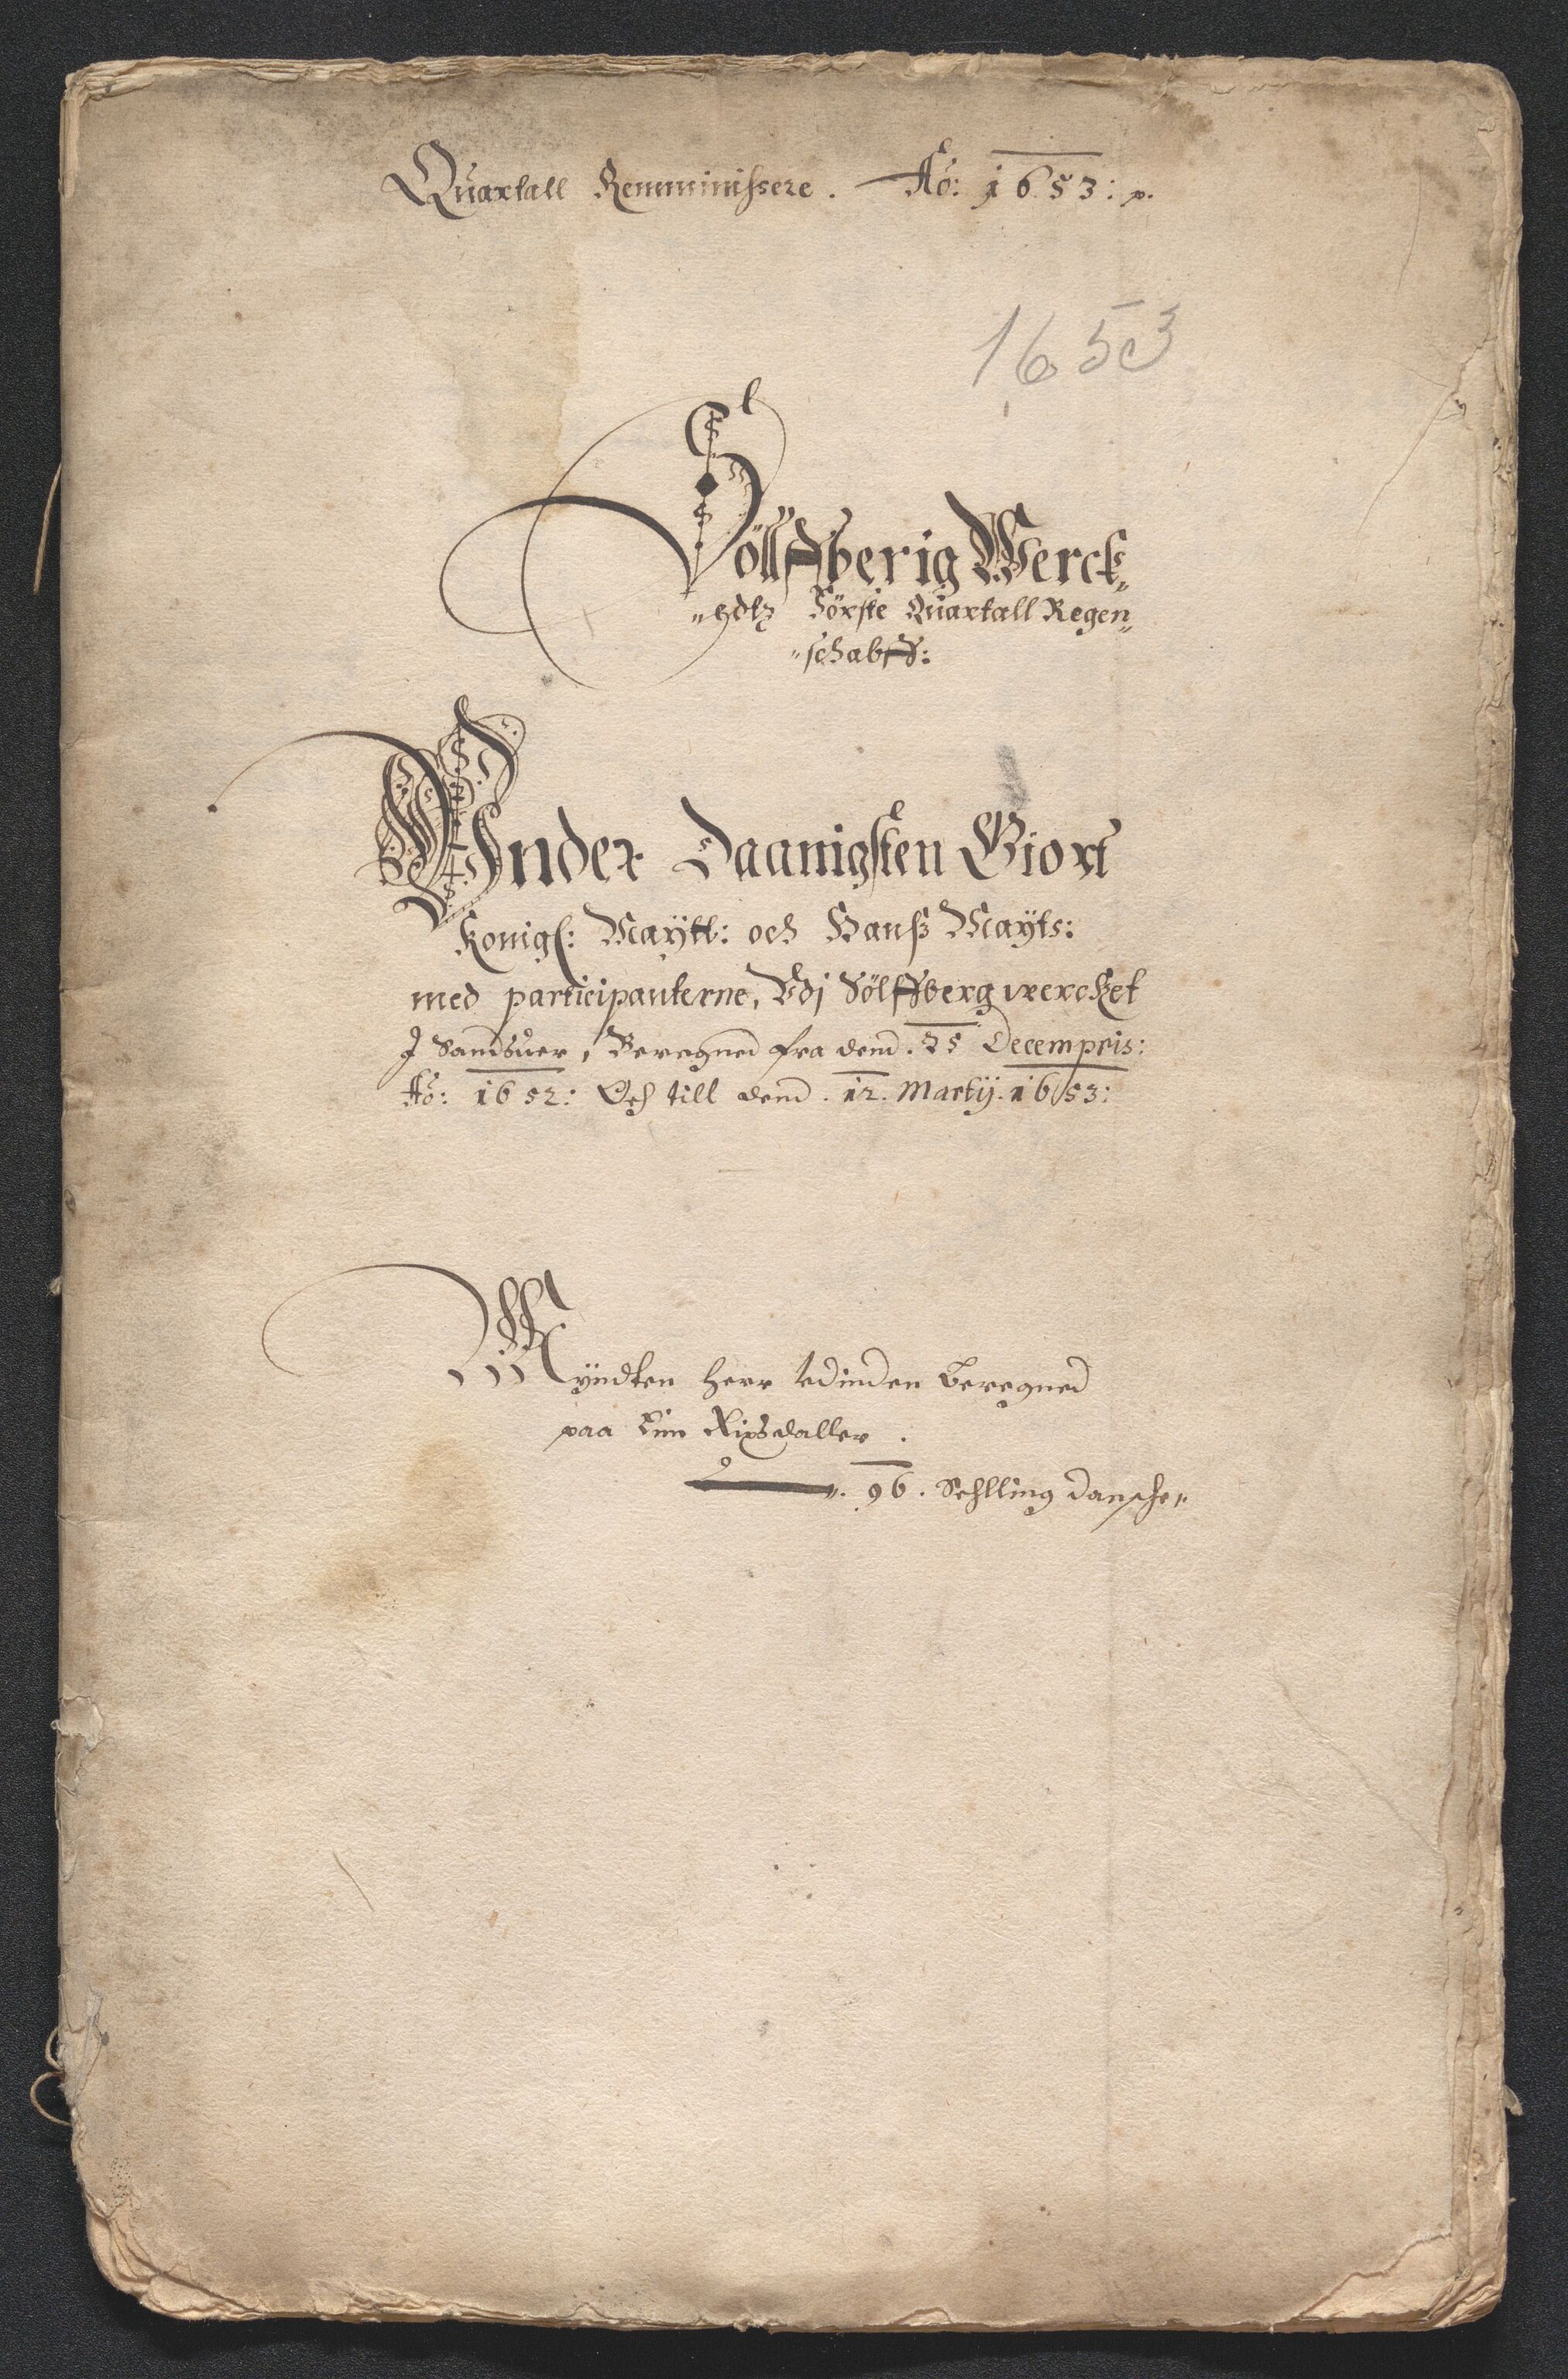 Quartall Remminissere. Ao: 1653: p.
1653
Sölffberig Werck„
„hdtz Förste Quartall Regen„
„schabff:
Vnder Daanigsten Giort
Konigl: Maÿtt: och Hanß Maÿts:
med participanterne, Vdj Sölffberg wercket
J Sandsuer, Beregned fra dend. 25 Decempris:
Ao: 1652: Och till dend. 12. Martij. 1653:
Myndten herr udinden beregned
paa Een Rixdaller.
„. 96. Schlling danske„